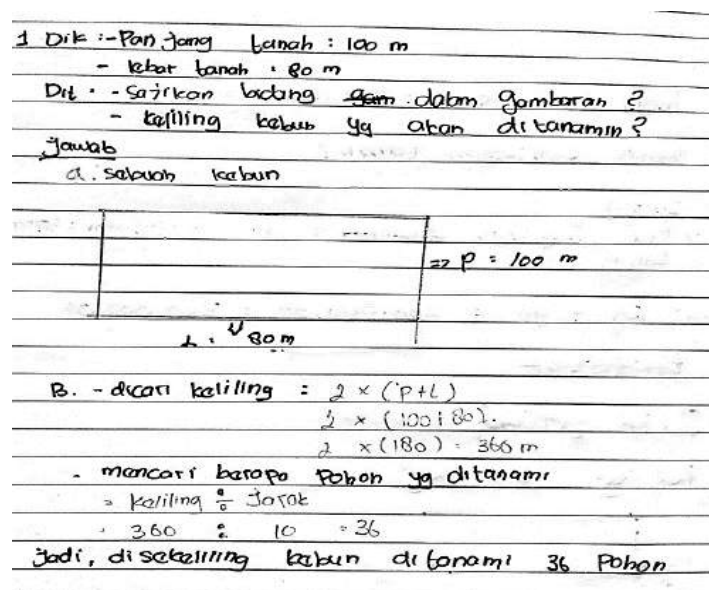 1 Dik :- Panjang tanah : 100 m
- lebar tanah : 80 m
Dit : - Sajikan bidang gam dalam gambaran ?
- keliling kebun yg akan ditanamin ?
Jawab
a. sebuah kebun
=> P = 100 m
L : 80 m
B. - dicari keliling = 2 × (P+L)
2 × (100 + 80).
2 × (180) = 360 m
- mencari berapa Pohon yg ditanami
= keliling ÷ Jarak
360 : 10 = 36
Jadi, disekeliling kebun ditanami 36 Pohon